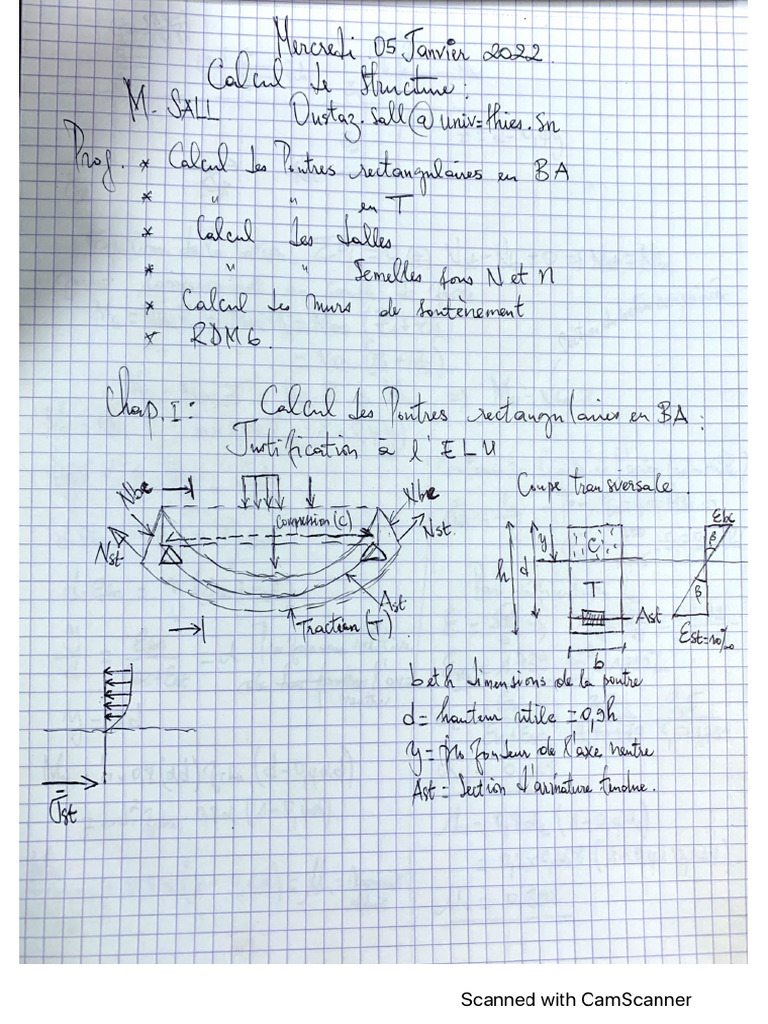 Mercredi 05 Janvier 2022
Calcul de Structure :
M. SALL Oustaz.sall@univ-thies.sn
Prog. * Calcul des Poutres rectangulaires en BA
* " " en T
* Calcul des dalles
* " " Semelles sous N et M
* Calcul des murs de soutènement
* RDM6.
Chap. I : Calcul des Poutres rectangulaires en BA :
Justification à l'ELU
Coupe transversale.
Nbc
Nbc
Compression (C)
Nst
Nst.
Ast
Traction (T)
h
d
y
C
T
Ast
b
εbc
β
β
εst=10‰
b et h dimensions de la poutre
d = hauteur utile = 0,9h
y = profondeur de l'axe neutre
Ast = Section d'armature tendue.
σst
Scanned with CamScanner